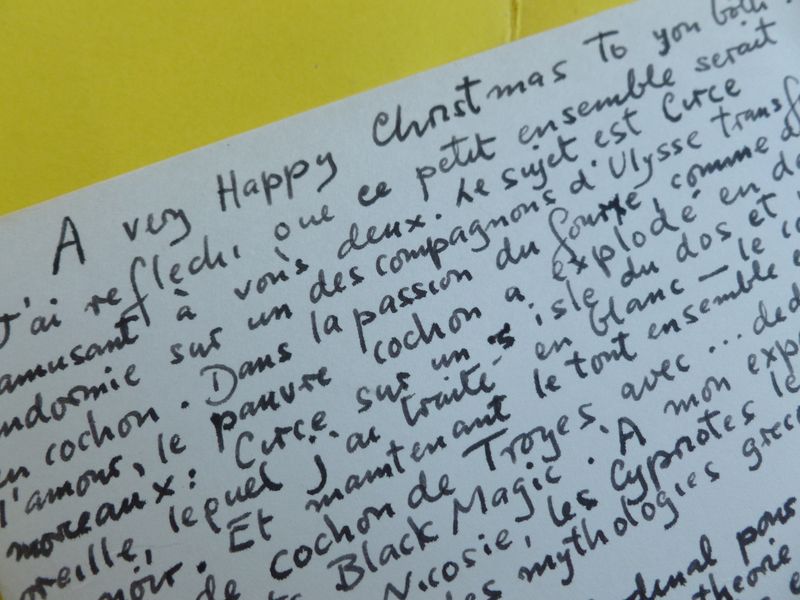 A very Happy Christmas To you both
J'ai reflechi que ce petit ensemble serait
amusant à vous deux. Le sujet est Circe
ndormie sur un des compagnons d'Ulysse transf
en cochon. Dans la passion du fourre, comme d
l'amour, le pauvre cochon a explodé en d
morceaux: Circe sur un isle du dos et
oreille, lequel j'ai traité en blanc — le
noir. Et maintenant le tout ensemble
de cochon de Troyes, avec ... ded
Black Magic. A mon exp
Nicosie, les Cypriotes le
des mythologies grec
pour
theorie